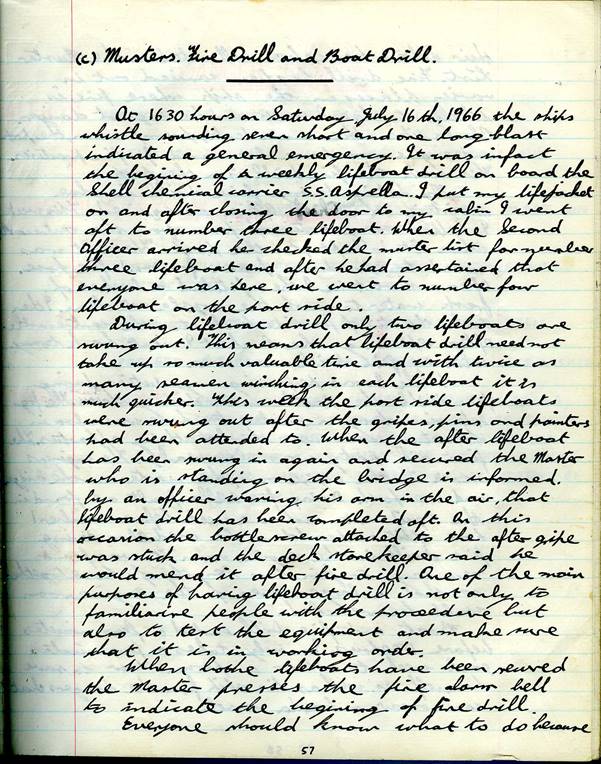 (c) Musters. Fire Drill and Boat Drill.
At 1630 hours on Saturday July 16th, 1966 the ships
whistle sounding seven short and one long blast
indicated a general emergency. It was infact
the begining of a weekly lifeboat drill on board the
Shell chemical carrier S.S. Aspella. I put my lifejacket
on and after closing the door to my cabin I went
aft to number three lifeboat. When the Second
Officer arrived he checked the muster list for number
three lifeboat and after he had assertained that
everyone was here, we went to number four
lifeboat on the port side.
During lifeboat drill only two lifeboats are
swung out. This means that lifeboat drill need not
take up so much valuable time and with twice as
many seamen winching in each lifeboat it is
much quicker. This week the port side lifeboats
were swung out after the gripes, pins and painters
had been attended to. When the after lifeboat
has been swung in again and secured the Master
who is standing on the bridge is informed,
by an officer waving his arm in the air, that
lifeboat drill has been completed aft. On this
occasion the bottlescrew attached to the after gripe
was stuck and the deck storekeeper said he
would mend it after fire drill. One of the main
purposes of having lifeboat drill is not only to
familiarise people with the proceedure but
also to test the equipment and make sure
that it is in working order.
When bothe lifeboats have been secured
the Master presses the fire alarm bell
to indicate the begining of fire drill.
Everyone should know what to do because
57